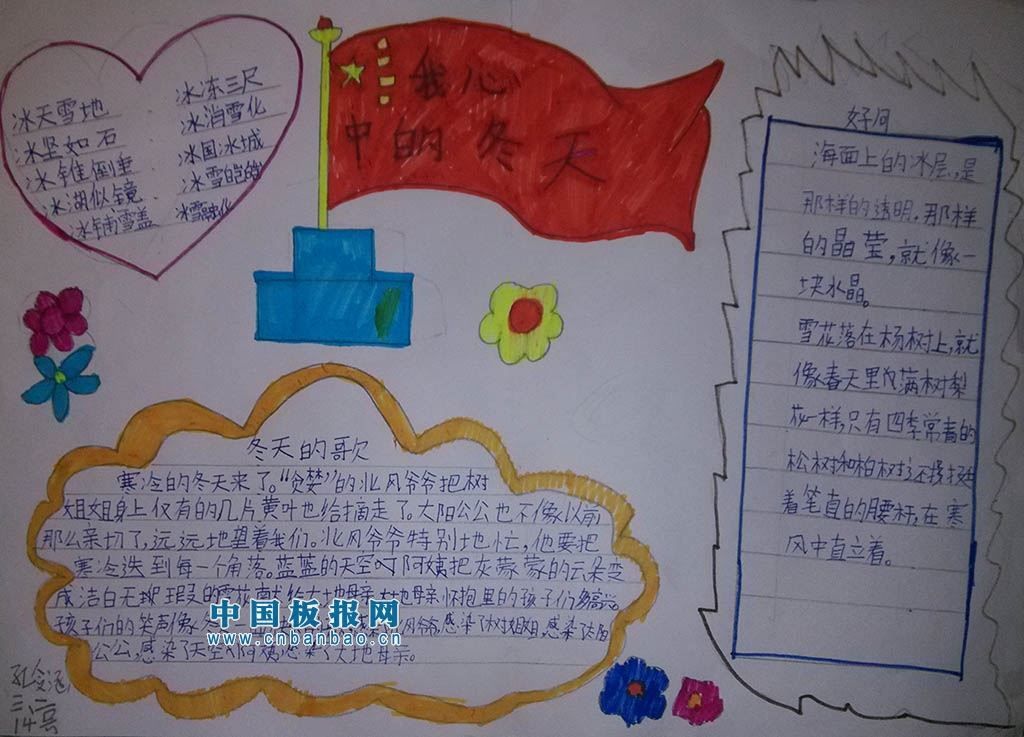 我心
中的冬天
冰天雪地
冰坚如石
冰锥倒垂
冰湖似镜
冰铺雪盖
冰冻三尺
冰消雪化
冰国冰城
冰雪皑皑
冰雪融化
好问
海面上的冰层,是
那样的透明,那样
的晶莹,就像一
块水晶。
雪花落在杨树上,就
像春天里的满树梨
花一样,只有四季常青的
松树和柏树,还挺拔
着笔直的腰杆,在寒
风中直立着。
冬天的歌
寒冷的冬天来了。“贪婪”的北风爷爷把树
姐姐身上仅有的几片黄叶也给摘走了。太阳公公也不像以前
那么亲切了,远远地望着我们。北风爷爷特别地忙,他要把
寒冷送到每一个角落。蓝蓝的天空阿姨把灰蒙蒙的云朵变
成洁白无瑕的雪花献给大地母亲,大地母亲怀抱里的孩子们多高兴。
孩子们的笑声像
风爷爷,感染了树姐姐,感染了太阳
公公,感染了天空阿姨,感染了大地母亲。
中国板报网
www.cnbanbao.cn
三、二
14号